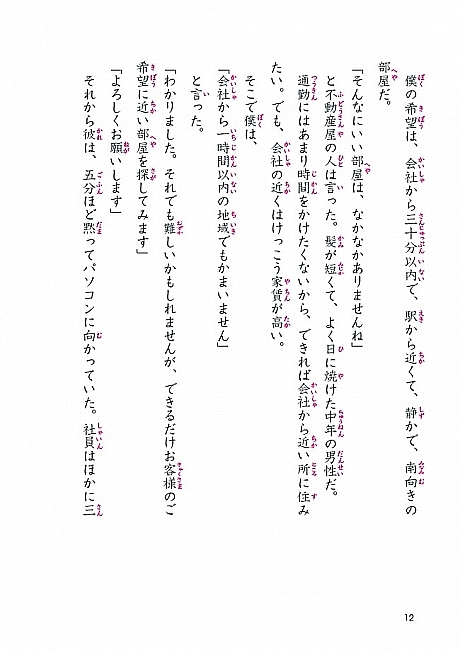 僕の希望は、会社から三十分以内で、駅から近くて、静かで、南向きの
部屋だ。
「そんなにいい部屋は、なかなかありませんね」
と不動産屋の人は言った。髪が短くて、よく日に焼けた中年の男性だ。
通勤にはあまり時間をかけたくないから、できれば会社から近い所に住み
たい。でも、会社の近くはけっこう家賃が高い。
そこで僕は、
「会社から一時間以内の地域でもかまいません」
と言った。
「わかりました。それでも難しいかもしれませんが、できるだけお客様のご
希望に近い部屋を探してみます」
「よろしくお願いします」
それから彼は、五分ほど黙ってパソコンに向かっていた。社員はほかに三
12